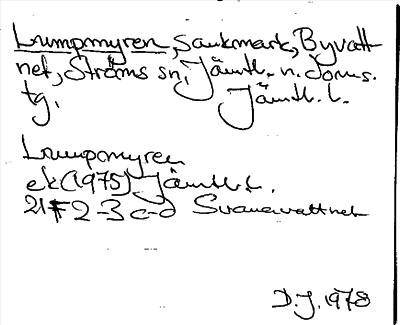 Lumpmyren, sankmark, Byvatt-
net, Ströms sn, Jämtl. n. doms.
tg. Jämtl. l.
Lumpmyren
ek (1975) Jämtl. l.
21F 2-3 c-d Svanavattnet
D.J. 1978